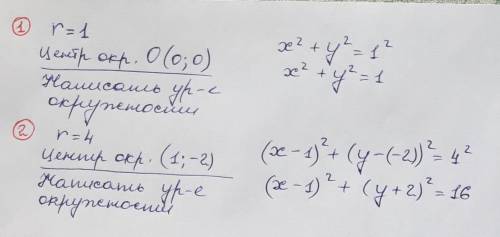 ① r = 1
Центр окр. O (0; 0)
Написать ур-е
окружности
x² + y² = 1²
x² + y² = 1
② r = 4
Центр окр. (1; -2)
Написать ур-е
окружности
(x - 1)² + (y - (-2))² = 4²
(x - 1)² + (y + 2)² = 16